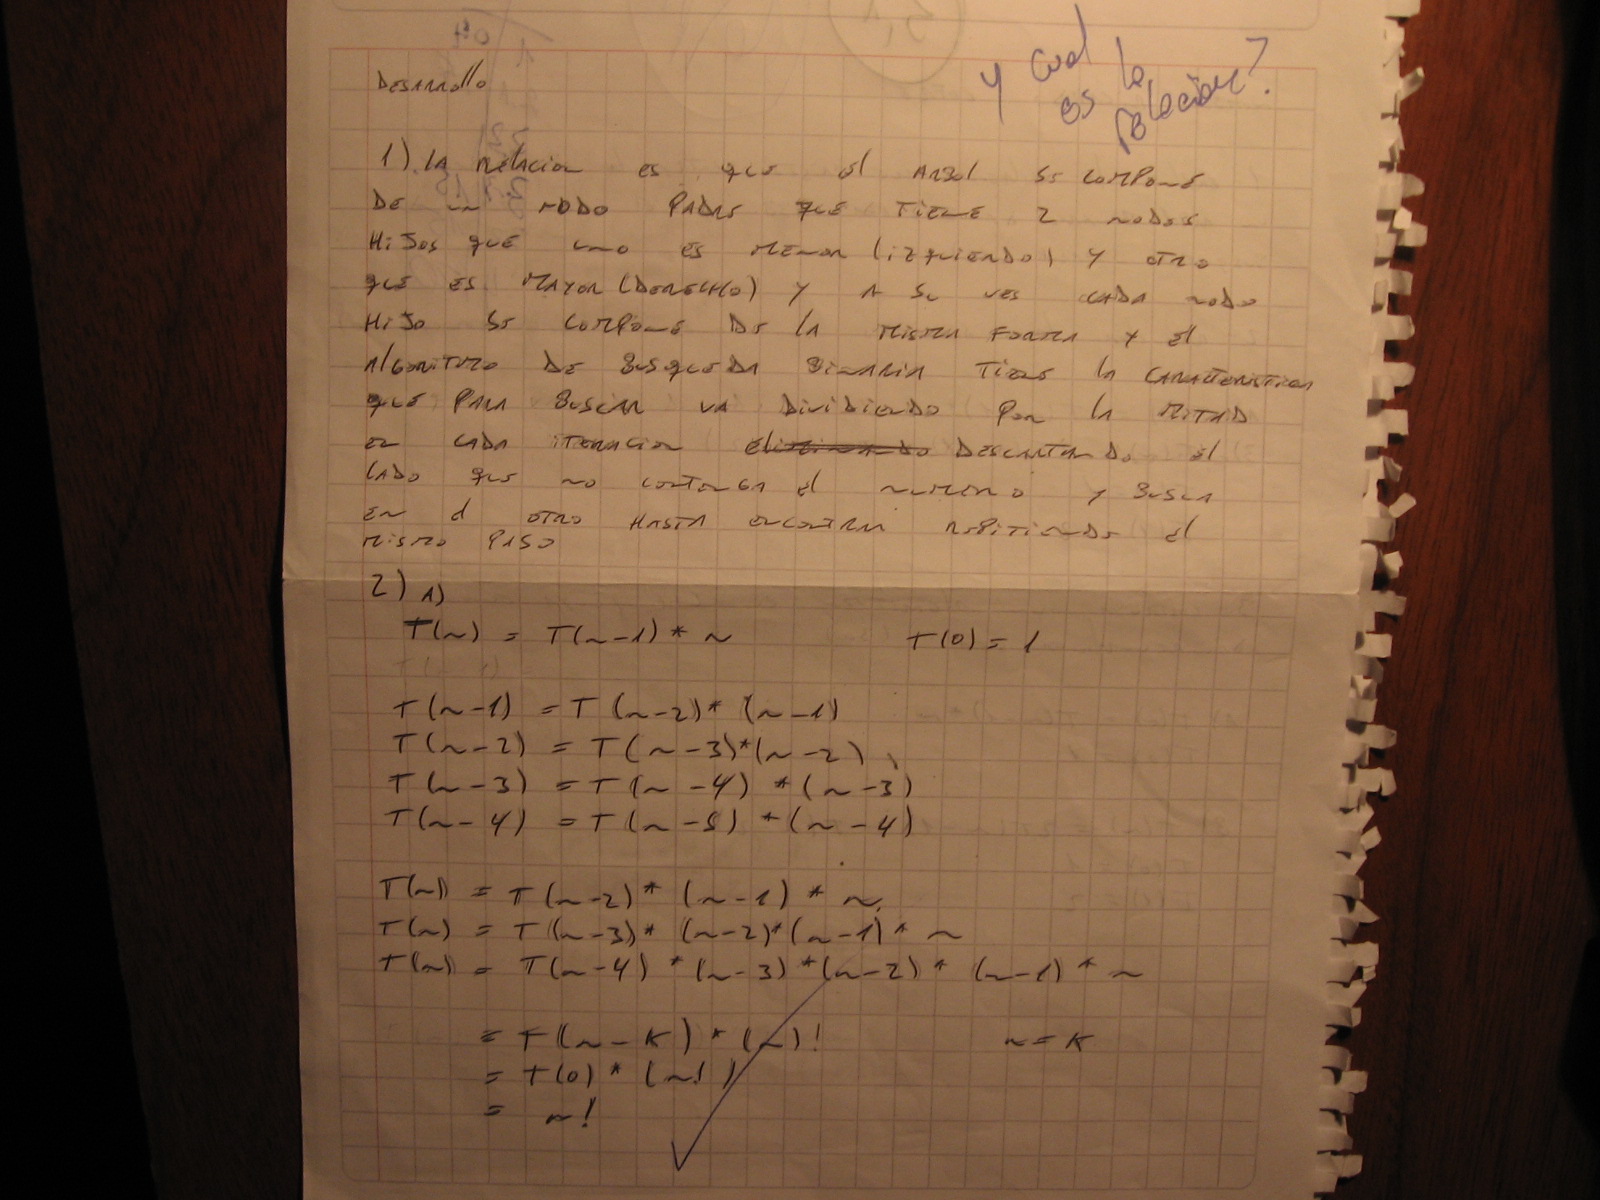 Y cual
es la
relación?
DESARROLLO
1). LA RELACION ES QUE EL ARBOL SE COMPONE
DE UN NODO PADRE QUE TIENE 2 NODOS
HIJOS QUE UNO ES MENOR (IZQUIERDO) Y OTRO
QUE ES MAYOR (DERECHO) Y A SU VES CADA NODO
HIJO SE COMPONE DE LA MISMA FORMA Y EL
ALGORITMO DE BUSQUEDA BINARIA TIENE LA CARACTERISTICA
QUE PARA BUSCAR VA DIVIDIENDO POR LA MITAD
EN CADA ITERACION ELIMINANDO DESCARTANDO EL
LADO QUE NO CONTENGA EL NUMERO Y BUSCA
EN EL OTRO HASTA ENCONTRAR REPITIENDO EL
MISMO PASO
2) A)
T(n) = T(n-1) * n T(0) = 1
T(n-1) = T(n-2) * (n-1)
T(n-2) = T(n-3)*(n-2)
T(n-3) = T(n-4) * (n-3)
T(n-4) = T(n-5) * (n-4)
T(n) = T(n-2) * (n-1) * n
T(n) = T(n-3) * (n-2)*(n-1) * n
T(n) = T(n-4) * (n-3) * (n-2) * (n-1) * n
= T(n-K) * (n)! n = K
= T(0) * (n!)
= n!